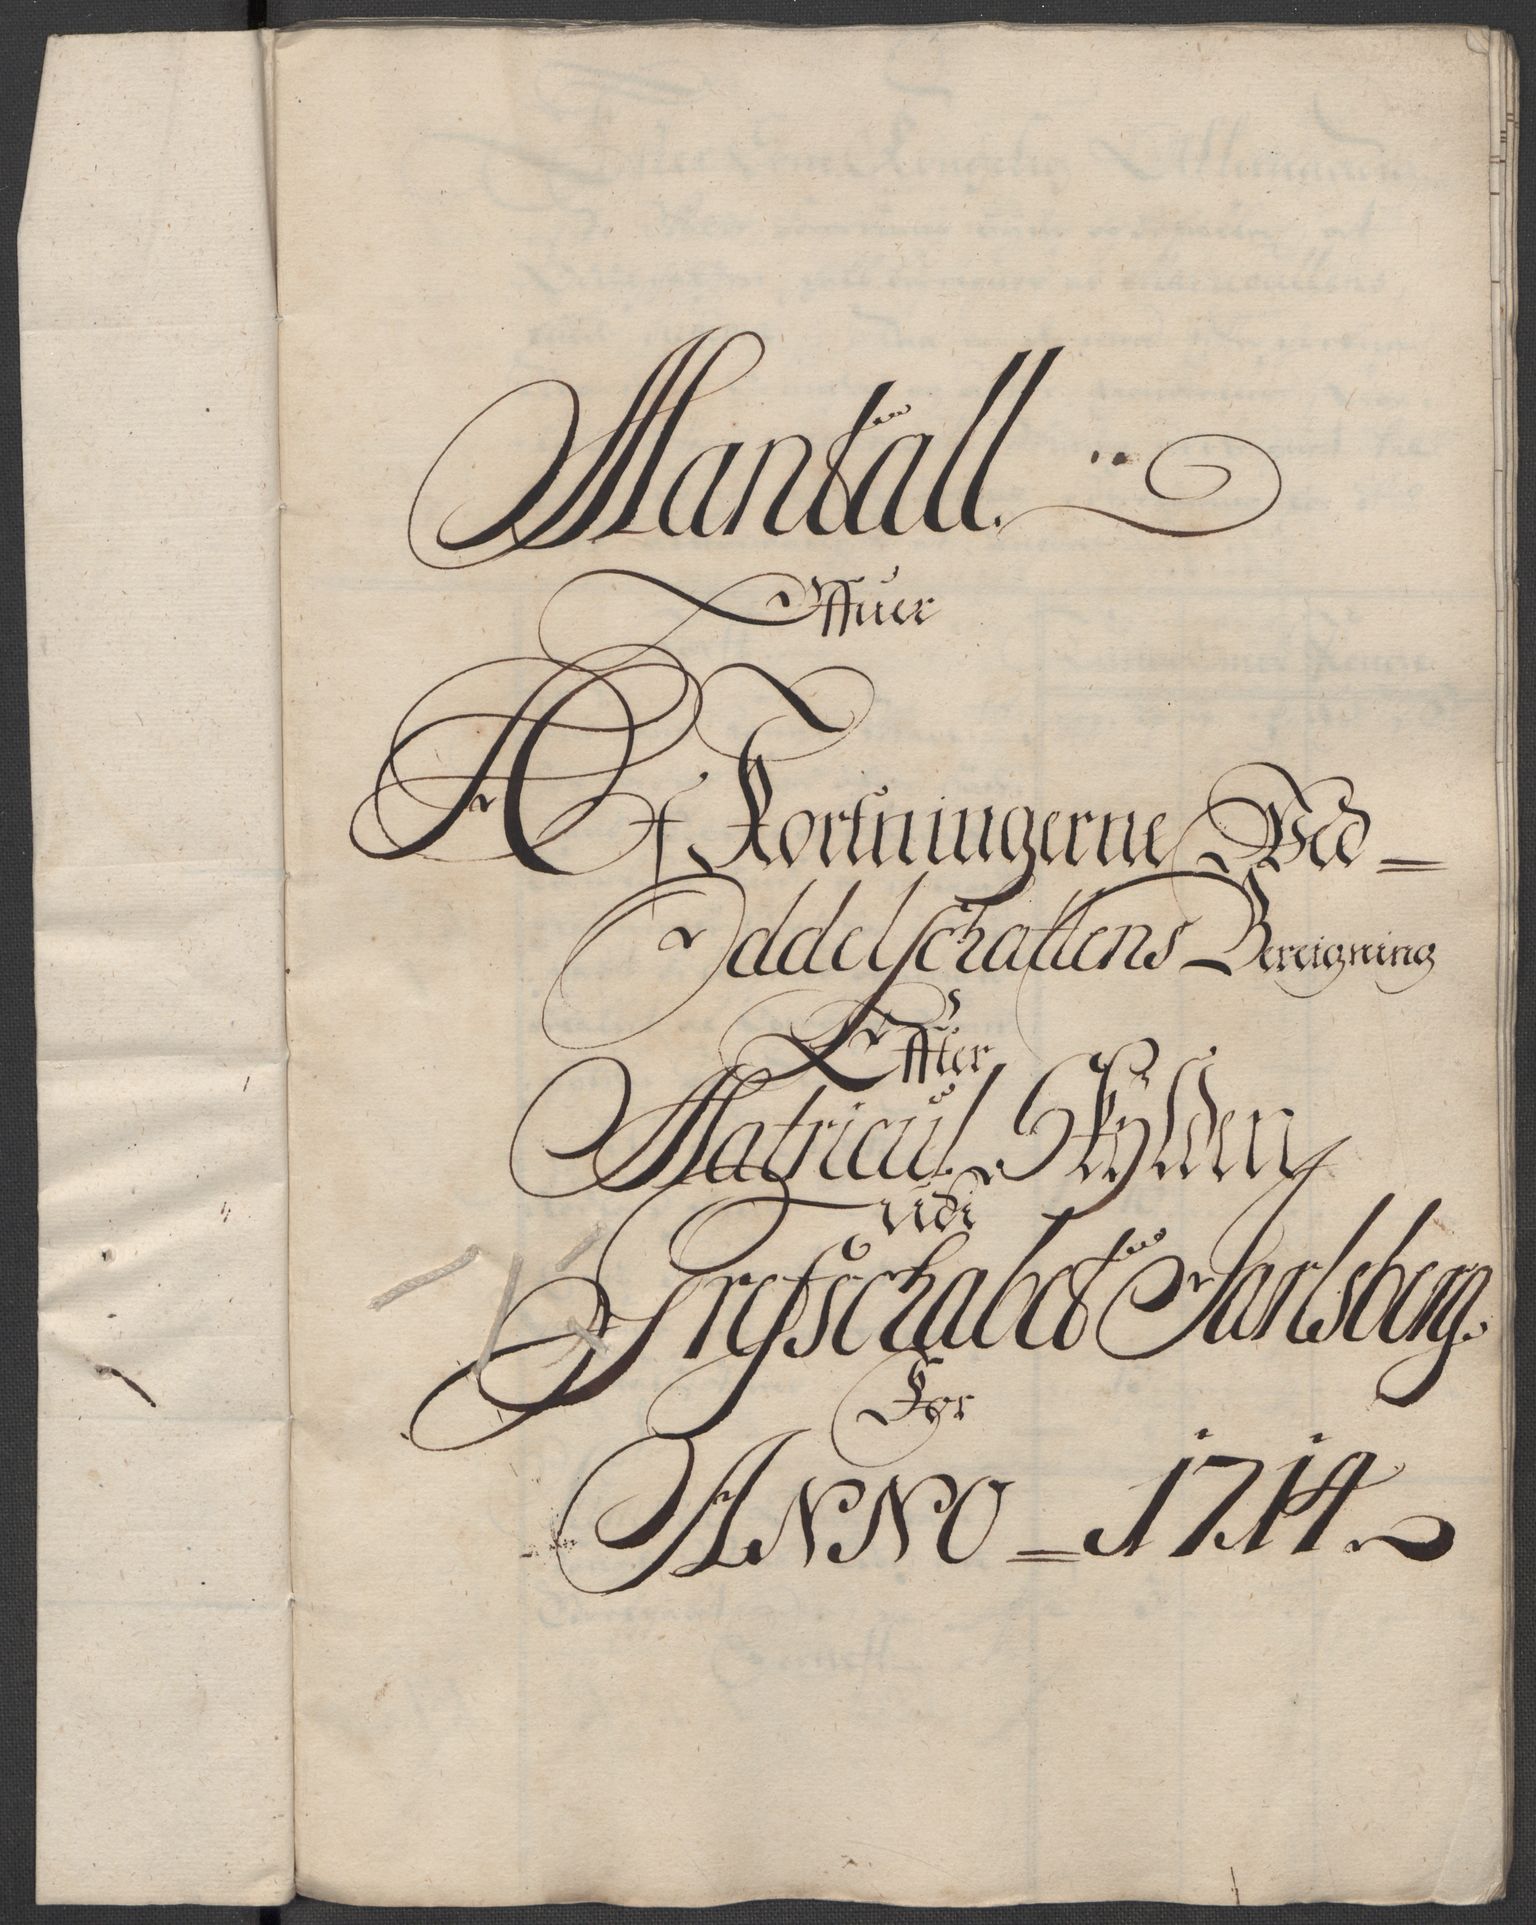 Mantall.
Offuer
Af Kortningerne Ved=
Oddelschattens Bereigning
Effter
Matricul Skÿlden
udi
Grefschabet Jarlsberg.
For
ANNO = 1714.